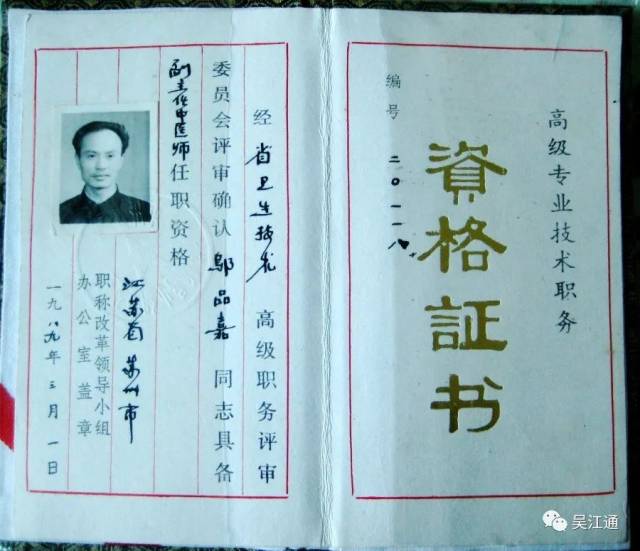 高级专业技术职务
資格証书
编号 二〇一一八
经 省卫生技术 高级职务评审
委员会评审确认 邬品嘉 同志具备
副主任中医师任职资格
江苏省苏州市
职称改革领导小组
办公室盖章
一九八九年三月一日
吴江通